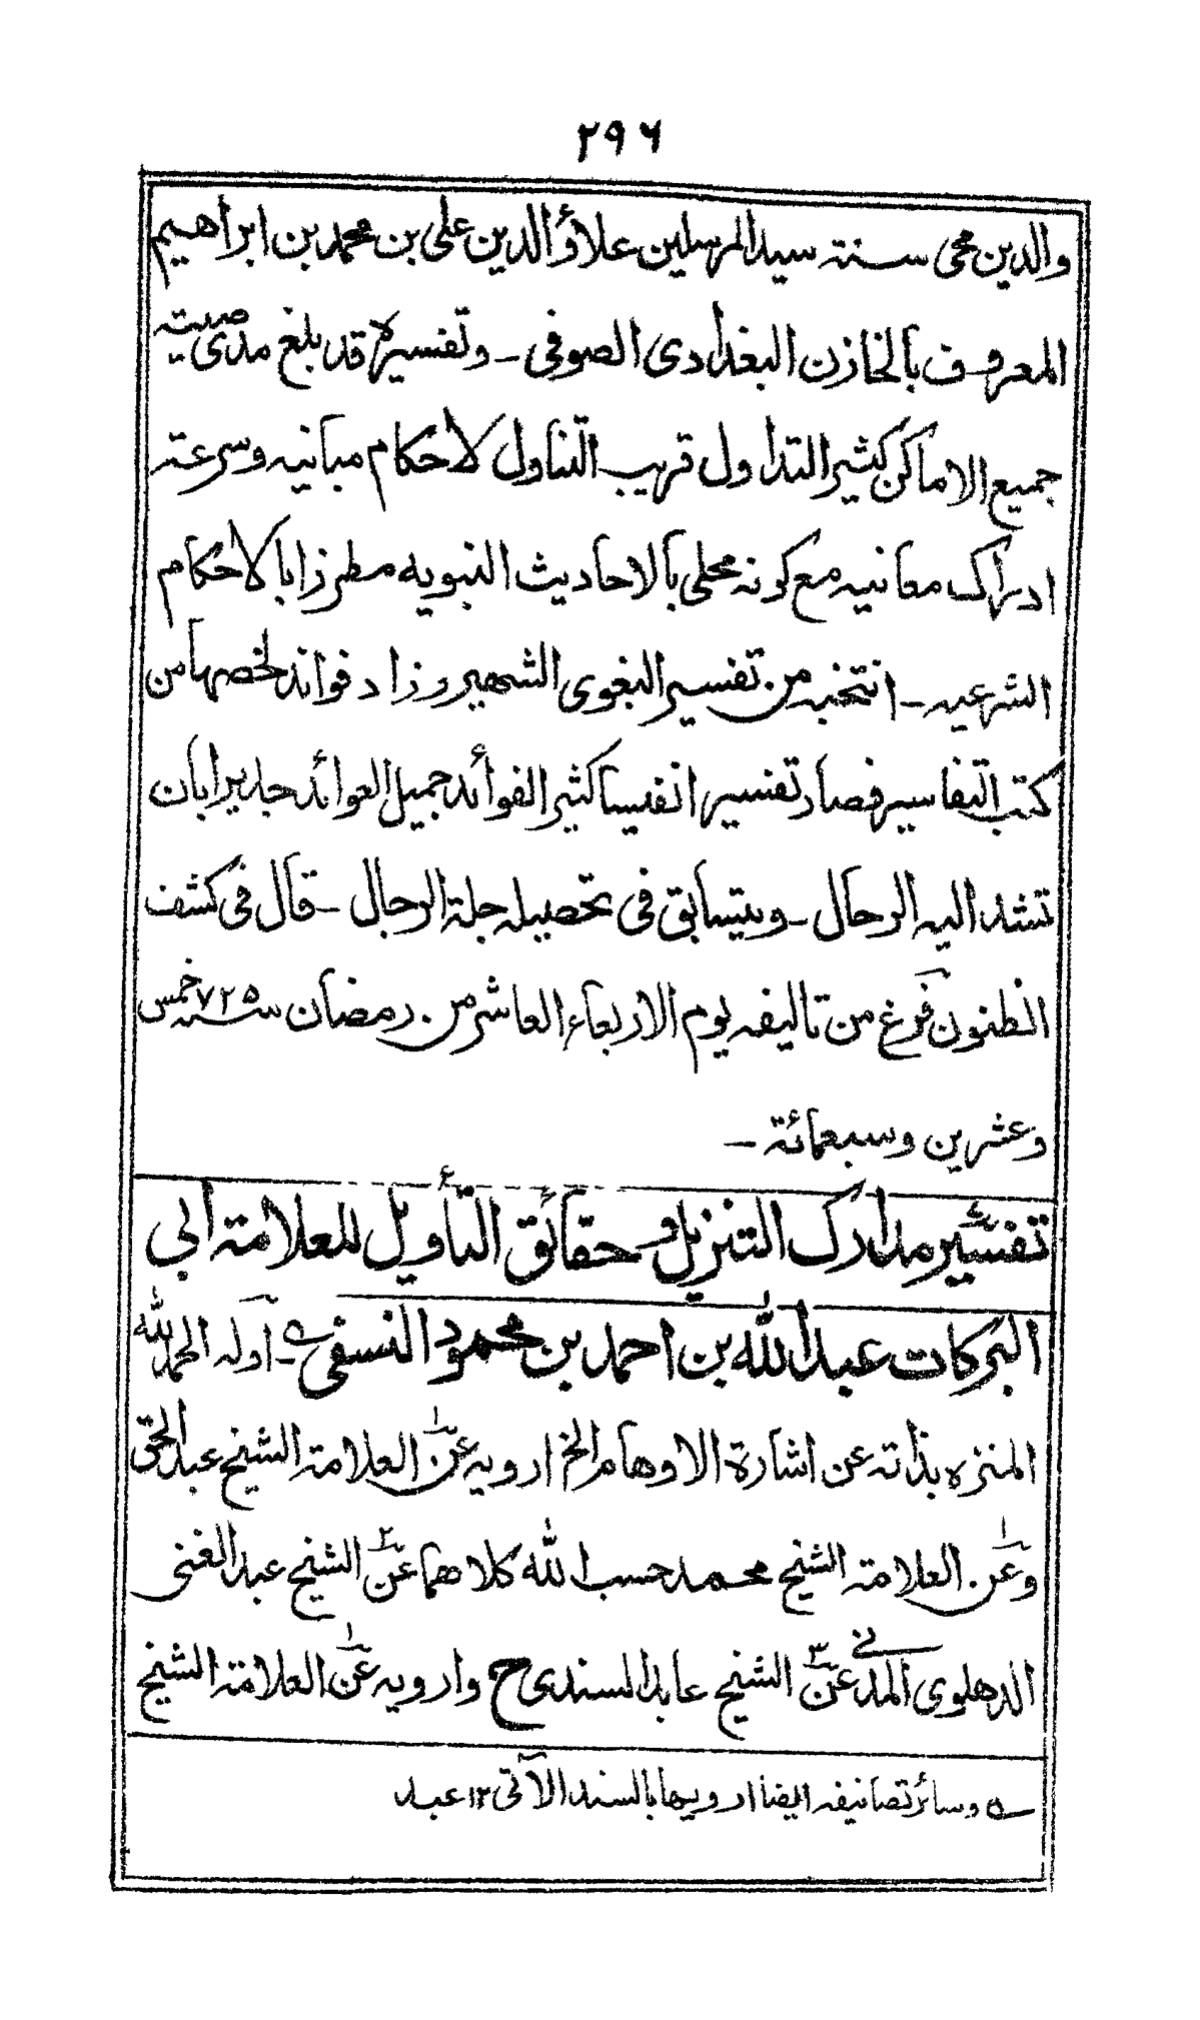 ٢٩٦
والدين محى سنة سيد المرسلين علاؤ الدين على بن محمد بن ابراهيم
المعروف بالخازن البغدادى الصوفى ـ وتفسيره قد بلغ مدى صيته
جميع الاماكن كثير التداول قريب التناول لاحكام مبانيه وسرعة
ادراك معانيه مع كونه محلى بالاحاديث النبويه مطرزا بالاحكام
الشرعيه ـ انتخبه من تفسير البغوى الشهير وزاد فوائد لخصها من
كتب التفاسير فصار تفسيرا نفيسا كثير الفوائد جميل العوائد جديرا بان
تشد اليه الرحال ـ ويتسابق فى تحصيله جلة الرجال ـ قال فى كشف
الظنون فرغ من تاليفه يوم الاربعاء العاشر من رمضان سنة ٧٢٥ خمس
وعشرين وسبعمائة ـ
تفسير مدارك التنزيل وحقائق التأويل للعلامة ابى
البركات عبد الله بن احمد بن محمود النسفى ـ اوله الحمد لله
المنزه بذاته عن اشارة الاوهام الخ ارويه عن١ العلامة الشيخ عبد الحق
وعن١ العلامة الشيخ محمد حسب الله كلاهما عن٢ الشيخ عبد الغنى
الدهلوى المدنى عن٣ الشيخ عابد السندى ح وارويه عن١ العلامة الشيخ
ـ٥ وسائر تصانيفه ايضا ارويها بالسند الآتى ١٢ عبد